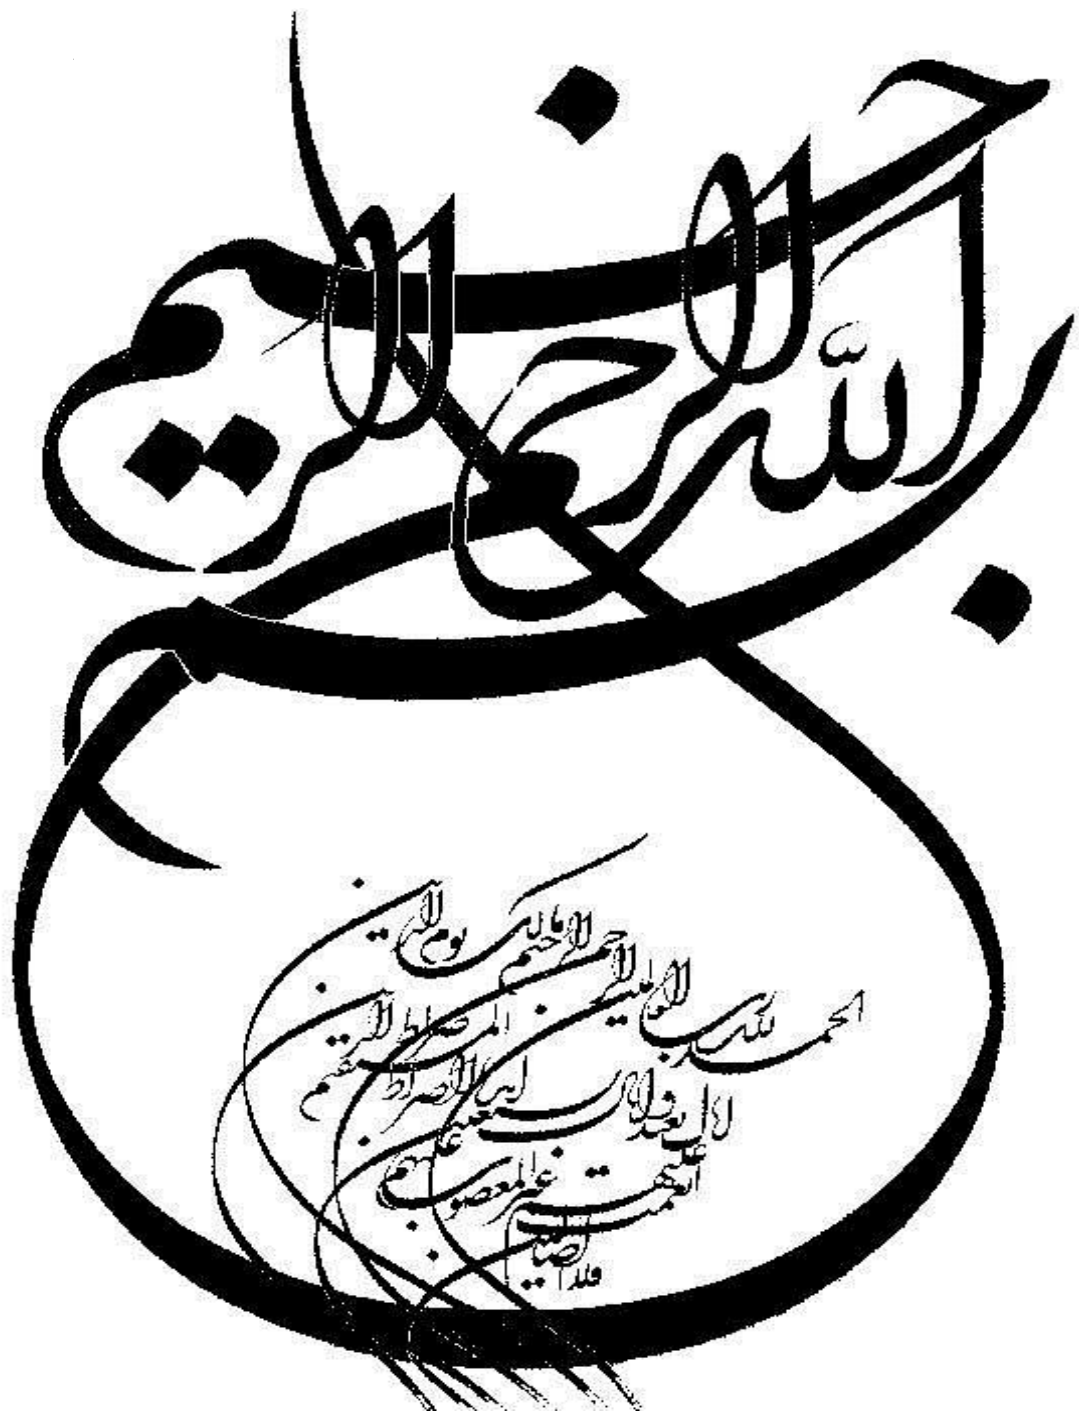 بسم الله الرحمن الرحیم
الحمد لله رب العالمین
الرحمن الرحیم
مالک یوم الدین
ایاک نعبد و ایاک نستعین
اهدنا الصراط المستقیم
صراط الذین
انعمت علیهم غیر المغضوب علیهم
ولا الضالین